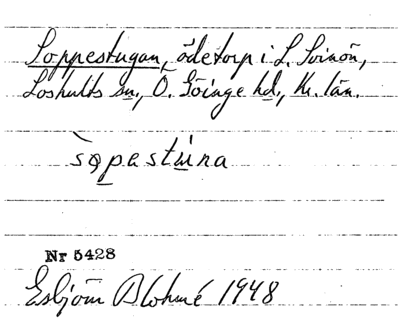 Soppestugan, ödetorp i L. Svinön,
Loshults sn., Ö. Göinge hd., Kr. län.
sǫpestúna
Nr 5428
Esbjörn Blohmé 1948